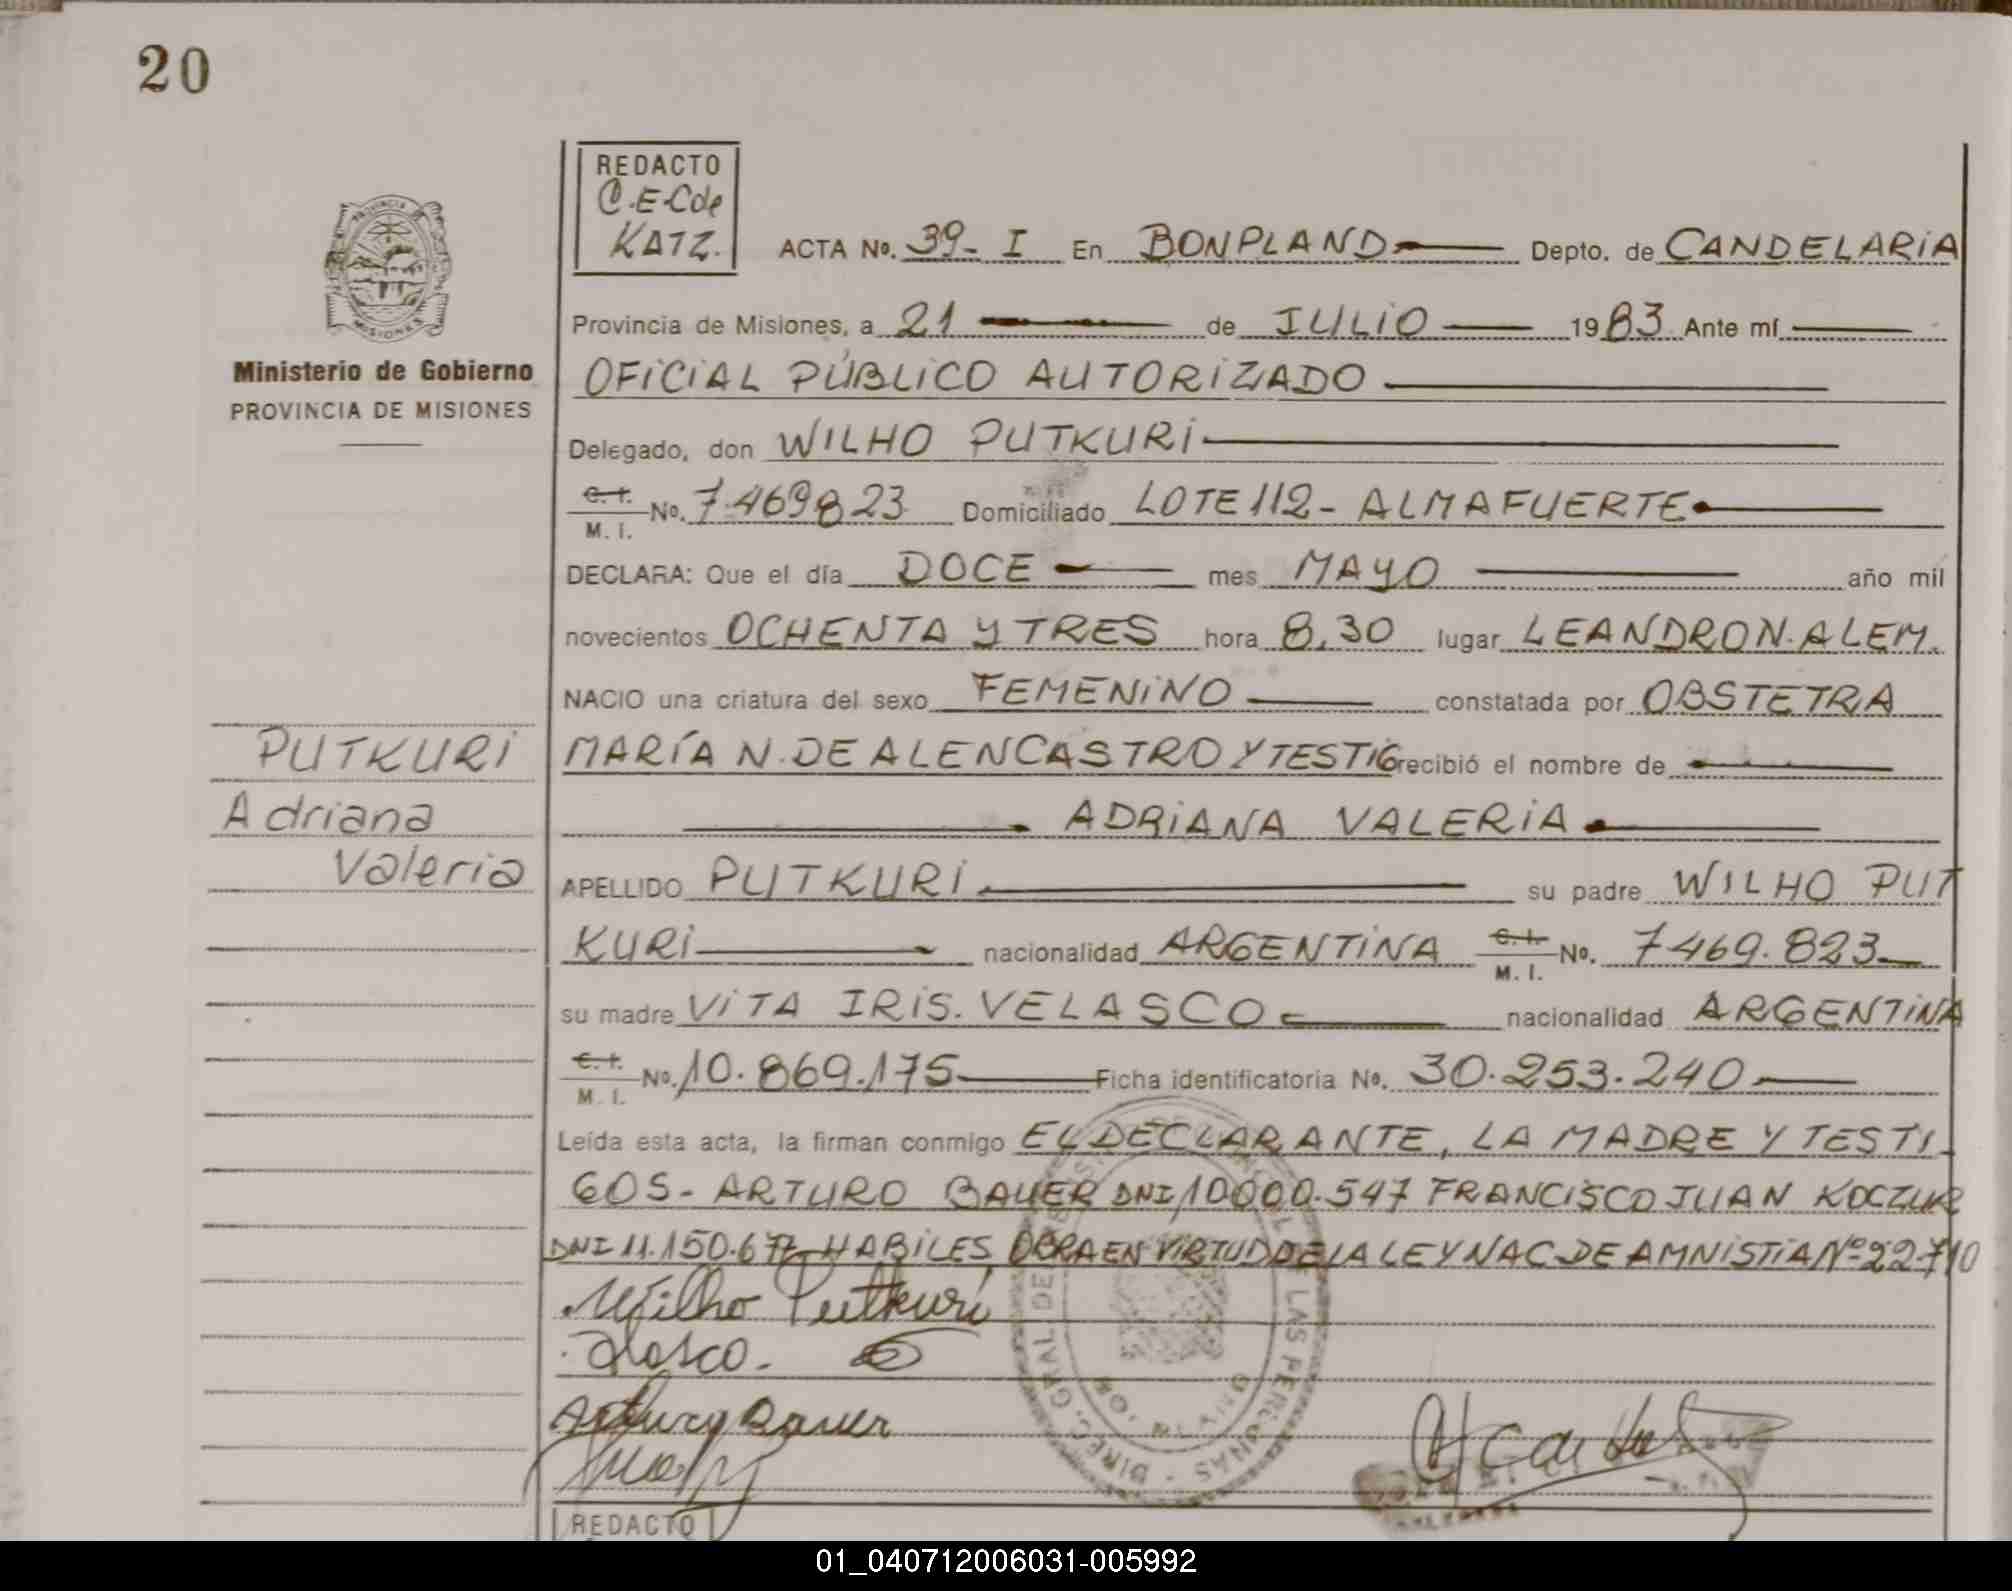 20
REDACTO
C.E.C de
KATZ.
ACTA No. 39- I En BONPLAND Depto. de CANDELARIA
Provincia de Misiones, a 21 de JULIO 1983 Ante mí
Ministerio de Gobierno
PROVINCIA DE MISIONES
OFICIAL PÚBLICO AUTORIZADO
Delegado, don WILHO PUTKURI
C. I. M. I. No. 7.469823 Domiciliado LOTE 112- ALMAFUERTE
DECLARA: Que el día DOCE mes MAYO año mil
novecientos OCHENTA Y TRES hora 8,30 lugar LEANDRO N. ALEM.
NACIO una criatura del sexo FEMENINO constatada por OBSTETRA
MARÍA N. DE ALENCASTRO Y TESTIG recibió el nombre de
ADRIANA VALERIA
PUTKURI
Adriana
Valeria
APELLIDO PUTKURI su padre WILHO PUT
KURI nacionalidad ARGENTINA C. I. M. I. No. 7469.823
su madre VITA IRIS. VELASCO nacionalidad ARGENTINA
C. I. M. I. No. 10.869.175 Ficha identificatoria No. 30.253.240
Leída esta acta, la firman conmigo EL DECLARANTE, LA MADRE Y TESTI
GOS- ARTURO BAUER DNI 10000.547 FRANCISCO JUAN KOCZUR
DNI 11.150.677 HABILES, OBRA EN VIRTUD DE LA LEY NAC DE AMNISTIA Nº 22.710
Wilho Putkuri
Arturo Bauer
DIREC. GRAL DE LAS PERSONAS
REDACTO
01_040712006031-005992